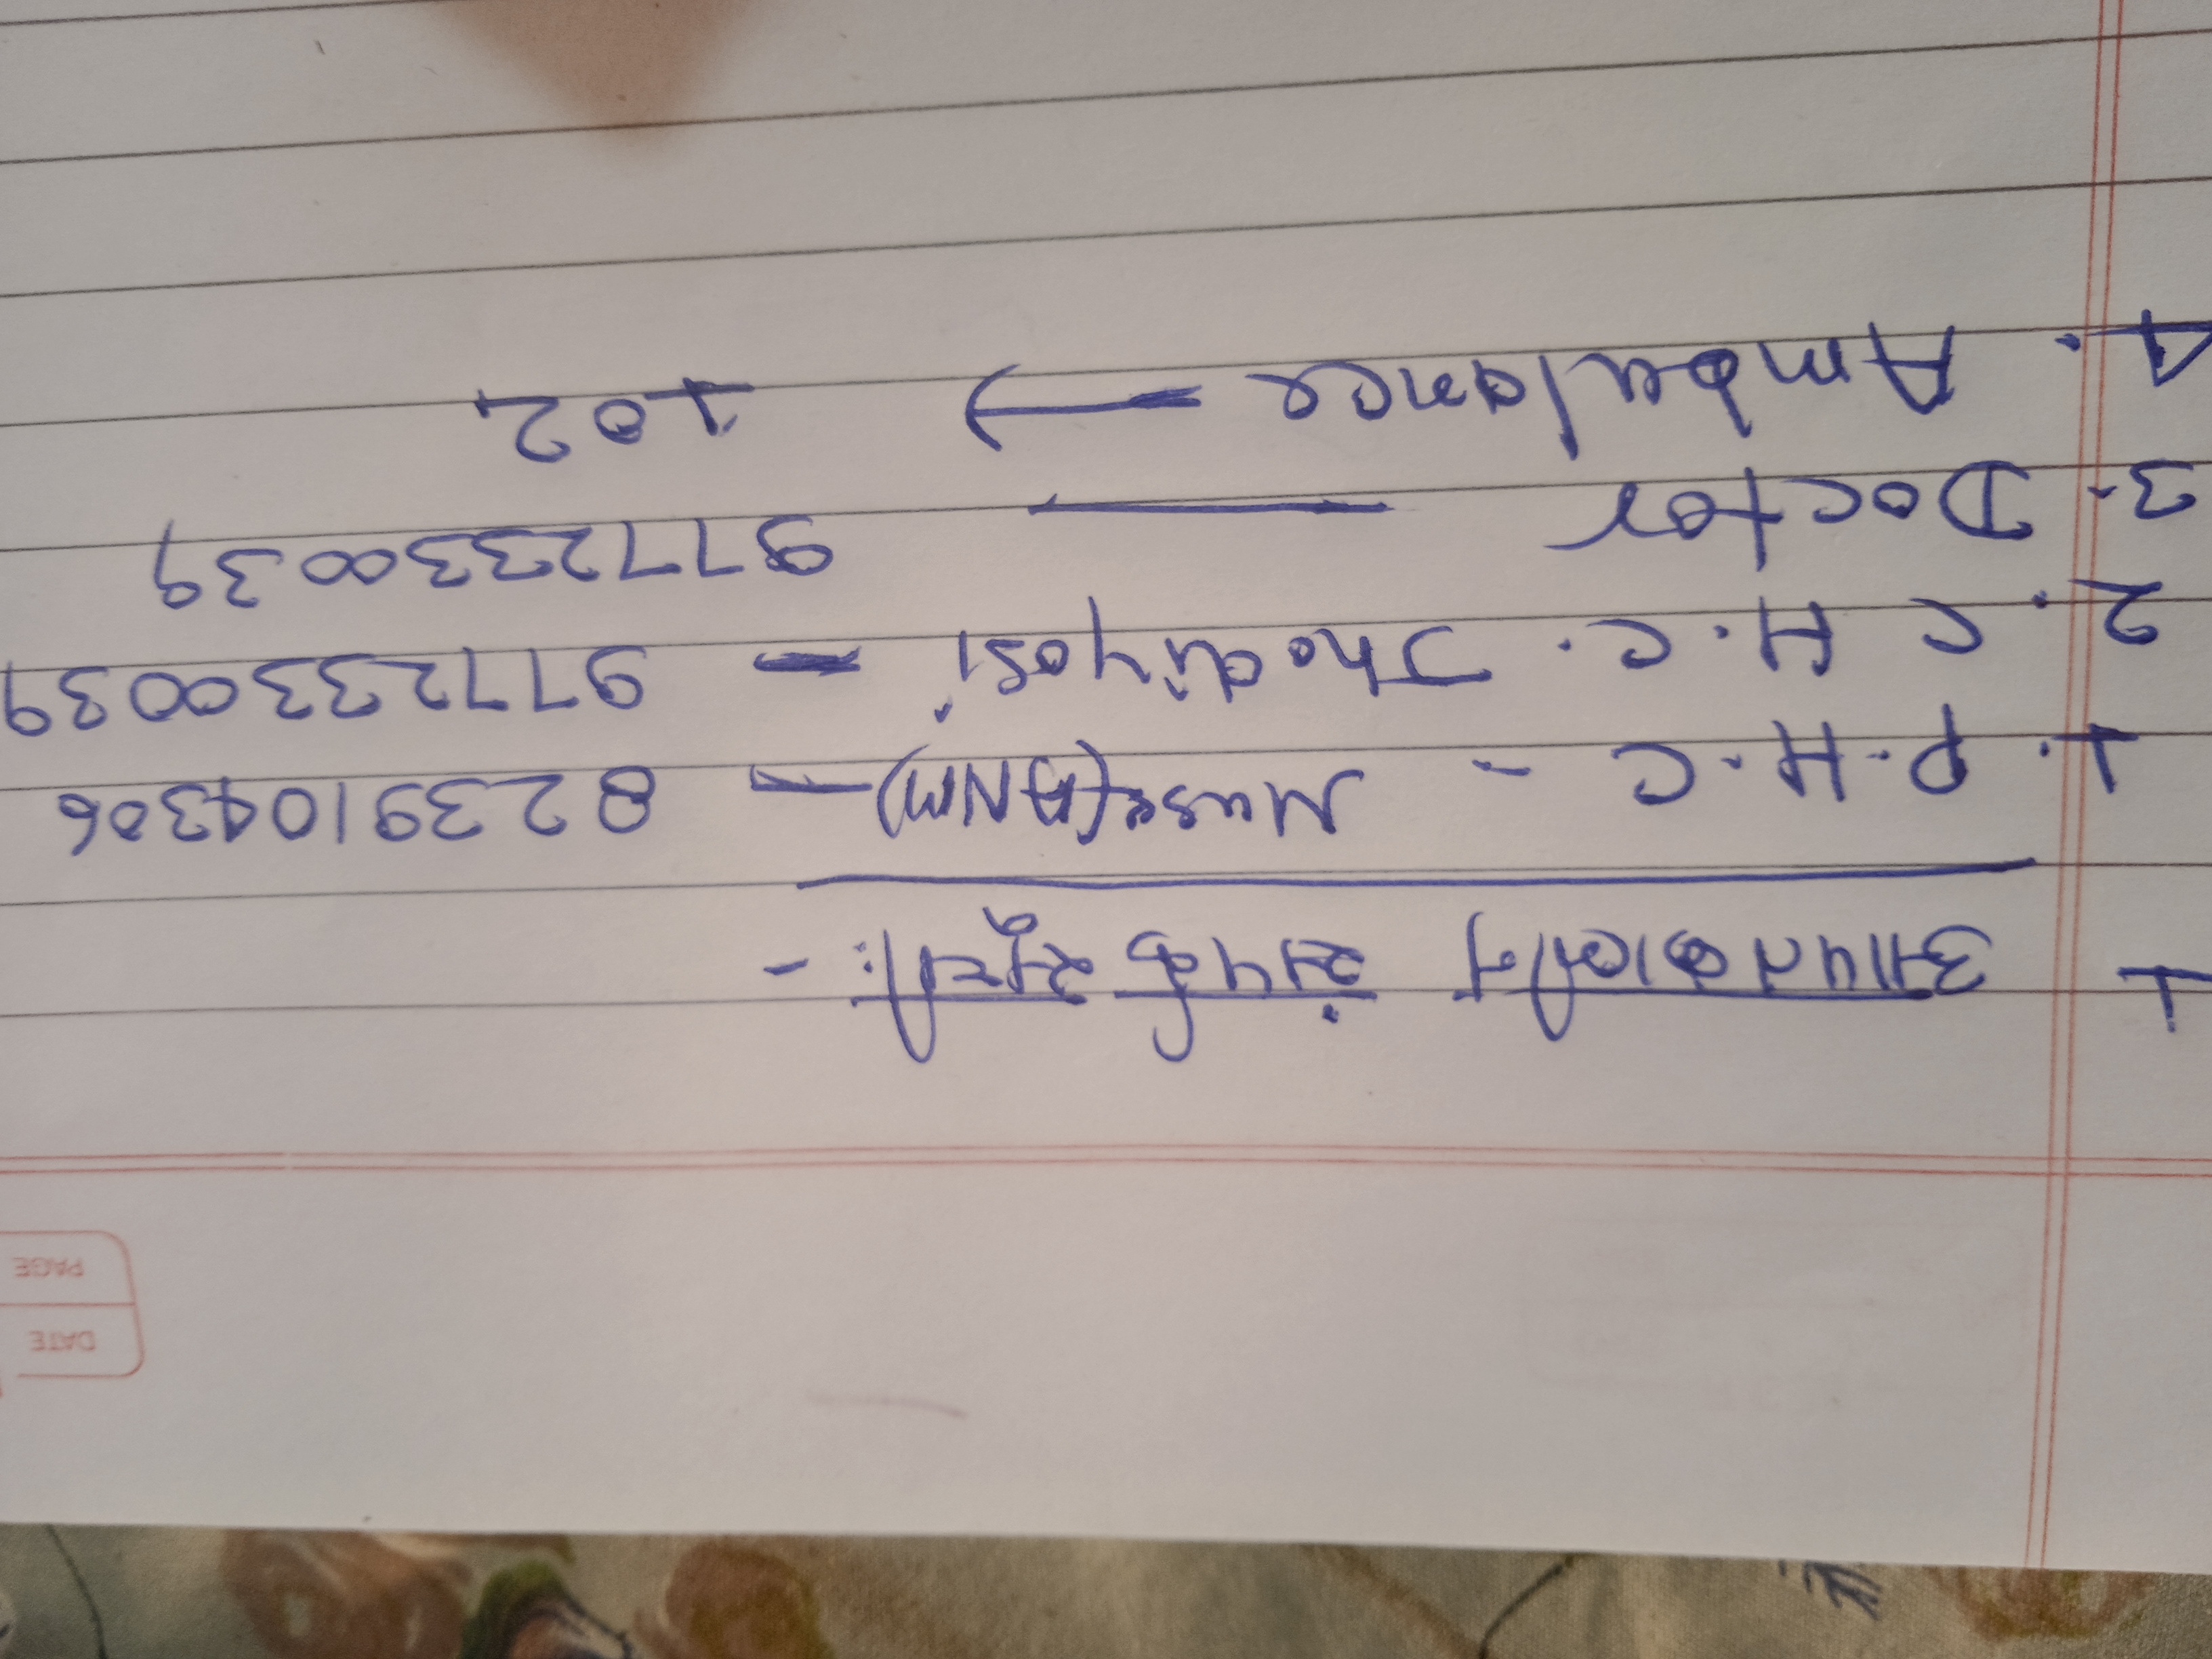 DATE
PAGE
1 आपातकालीन संपर्क सूची: -
1. P.H.C - Nurse (ANM) — 8239104306
2. C H.C. Jhadiyosi — 9772330039
3. Doctor — 9772330039
4. Ambulance → 102